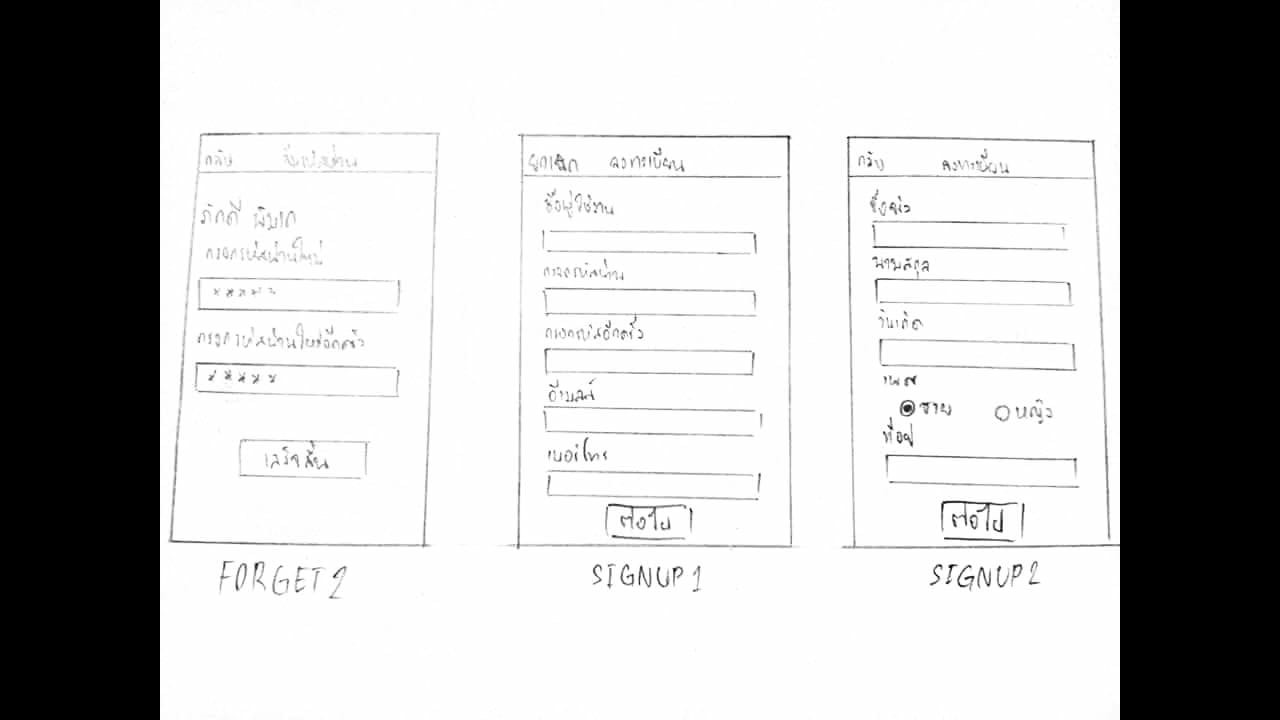 กลับ ลืมรหัสผ่าน
ภักดี
กรอกรหัสผ่านใหม่
*****
กรอกรหัสผ่านใหม่อีกครั้ง
*****
เสร็จสิ้น
FORGET2
ยกเลิก ลงทะเบียน
ชื่อผู้ใช้งาน
กรอกรหัสผ่าน
กรอกรหัสอีกครั้ง
อีเมลล์
เบอร์โทร
ต่อไป
SIGNUP1
กลับ ลงทะเบียน
ชื่อจริง
นามสกุล
วันเกิด
เพศ
ชาย หญิง
ที่อยู่
ต่อไป
SIGNUP2